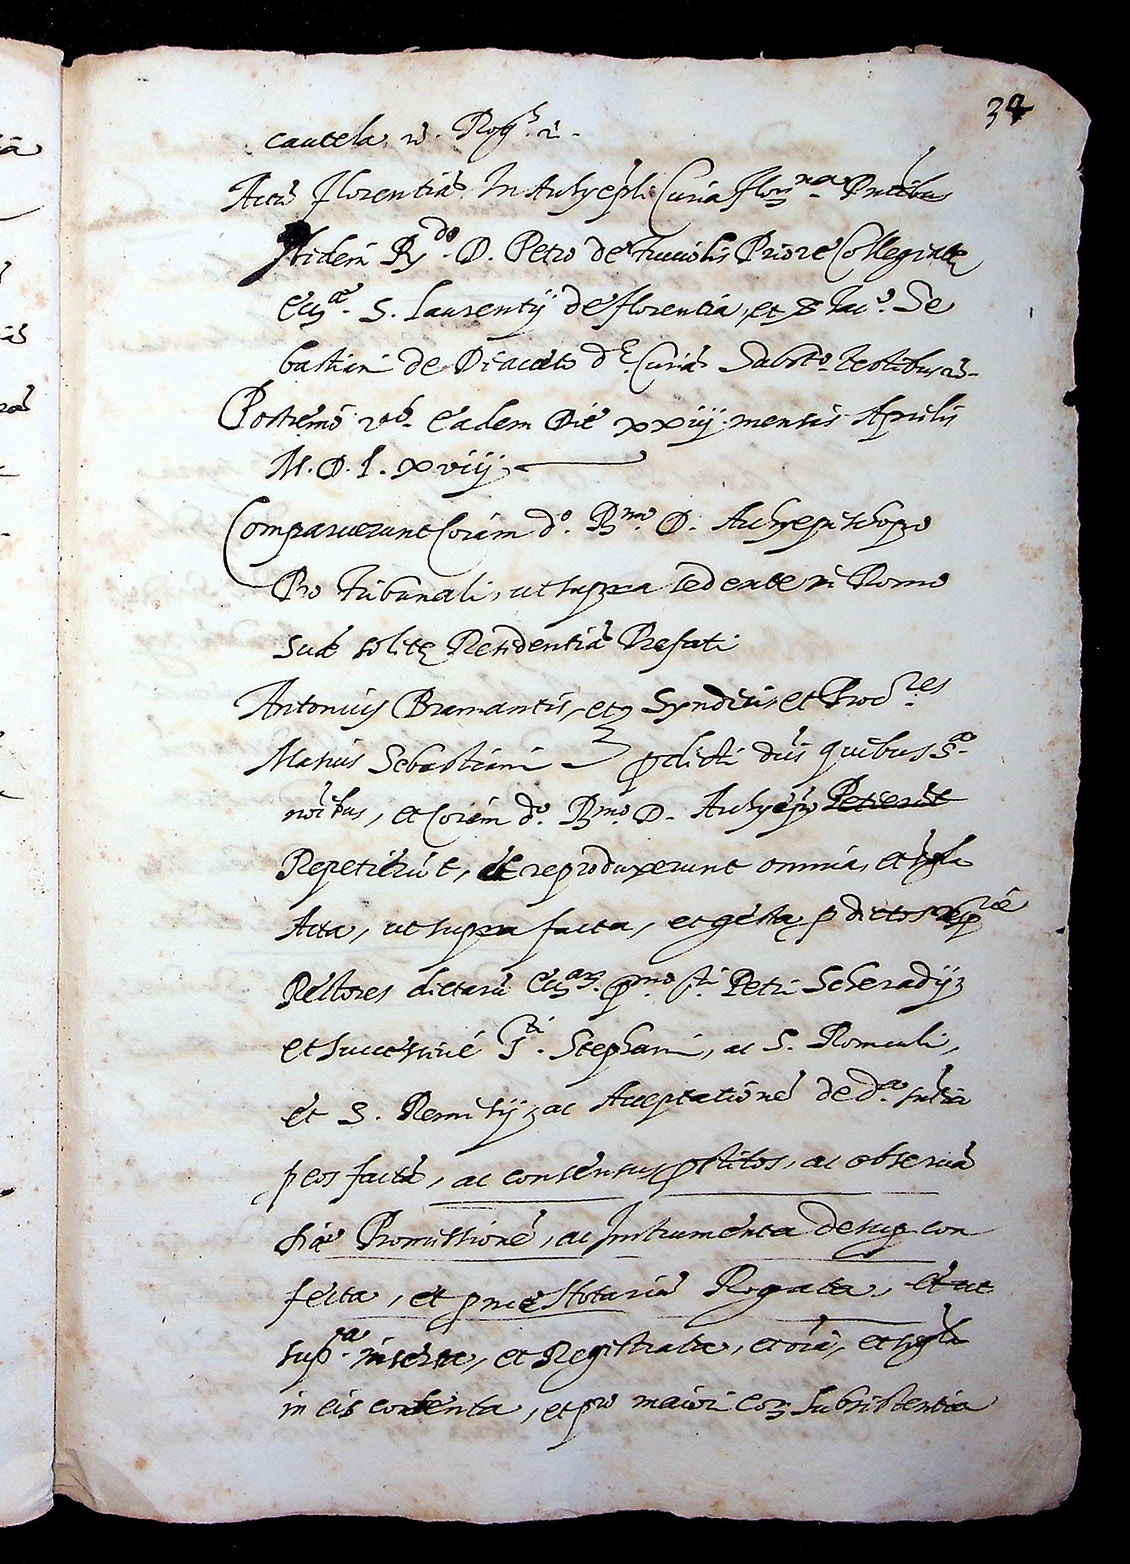 34
cautela
Acta Florentiae In Archyepli Curia Florna. Pntibus
Ibidem Rdo. D. Petro de Priore Collegiatę
Eccae. S. Laurentij de florentia, et S Jaco. Se
bastiani de Diaceto de. Curia
Postremo vo. Eadem Die xxiij mensis Aprilis
M.D.L.xviij.
Comparuerunt Coram do. Rmo D. Archyepischopo
Pro Tribunali, ut supra sedente in Romo
suae solitę Residentiae Prefati
Antonius Bramantis, et Syndicus et Procres
Marius Sebastiani pdicti dnis quibus sa
noibus, et Coram do. Rmo. D. Archyepo Petierut
Repetierut, et reproduxerunt omnia, et sgla
Acta, ut supra facta, et gesta p dictos
Rectores dictaru Eccar. pmo Sti Petri Scheradij
et successive Sti. Stephani, ac S. Romuli,
et S. Remisij, ac Acceptatione de da. sntia
p eos facta, ac consensus pstitos, ac observa
tiae Promissione, ac Instrumenta desup con
fecta, et p me Notariu Rogata, et ut
supa. inserta, et Registrata, et oia, et sgla
in eis contenta, et pro maiori eor subsistentia